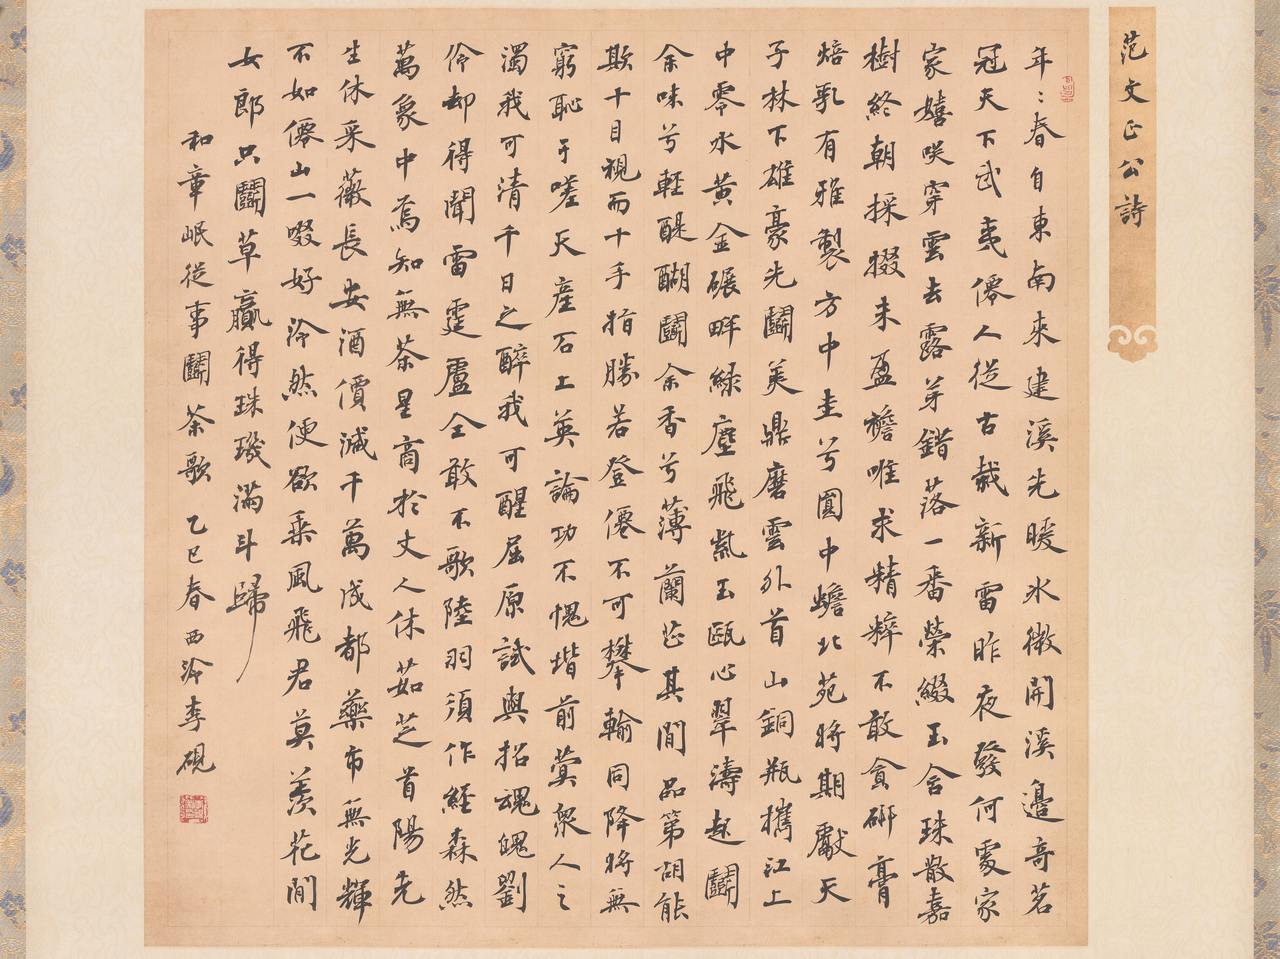 范文正公詩
年〻春自東南來建溪先暖氷微開溪邊奇茗
冠天下武夷僊人從古栽新雷昨夜發何處家
家嬉咲穿雲去露芽錯落一番榮綴玉含珠散嘉
樹終朝採掇未盈襜唯求精粹不敢貪研膏
焙乳有雅製方中圭兮圓中蟾北苑將期獻天
子林下雄豪先鬭美鼎磨雲外首山銅瓶攜江上
中零水黃金碾畔綠塵飛紫玉甌心翠濤起鬭
余味兮輕醍醐鬭余香兮薄蘭芷其間品第胡能
欺十目視而十手指勝若登僊不可攀輸同降將無
窮恥于嗟天產石上英論功不愧堦前蓂衆人之
濁我可清千日之醉我可醒屈原試與招魂魄劉
伶却得聞雷霆盧仝敢不歌陸羽須作經森然
萬象中焉知無茶星商於丈人休茹芝首陽先
生休采薇長安酒價減千萬成都藥市無光輝
不如僊山一啜好泠然便欲乘風飛君莫羨花間
女郎只鬭草贏得珠璣滿斗歸
和章岷從事鬭茶歌 乙巳春西泠李硯